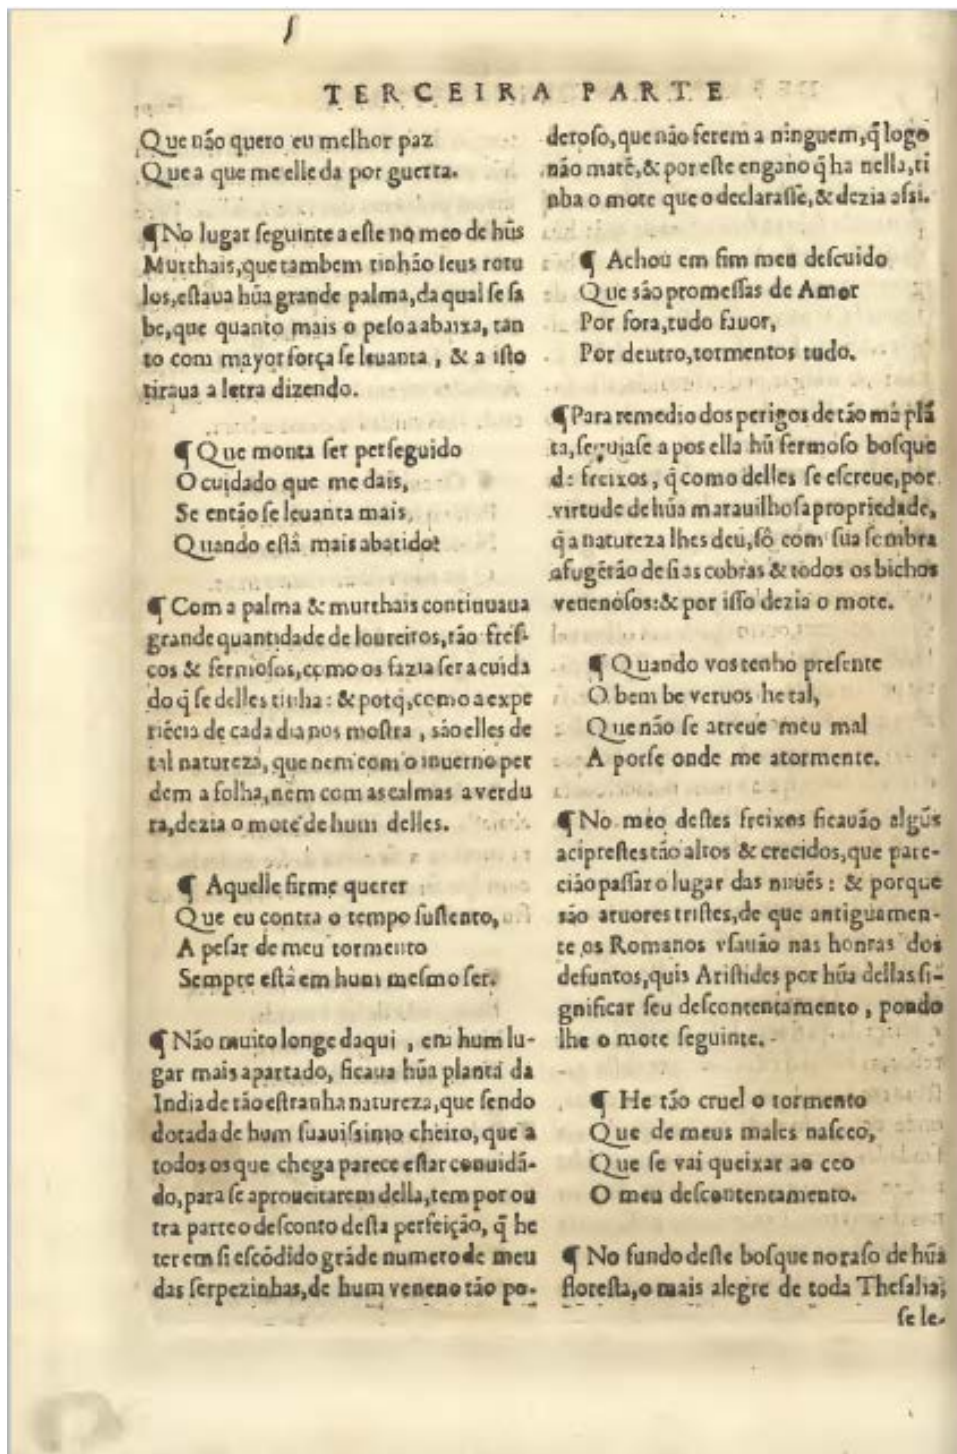 TERCEIRA PARTE
Que não quero eu melhor paz
Que a que me elle da por guerra.
¶ No lugar ſeguinte a eſte no meo de hũs
Murthais, que tambem tinhão ſeus rotu
los, eſtaua hũa grande palma, da qual ſe ſa
be, que quanto mais o peſo a abaixa, tan
to com mayor força ſe leuanta, & a iſto
tiraua a letra dizendo.
¶ Que monta ſer perſeguido
O cuidado que me dais,
Se então ſe leuanta mais,
Quando eſtâ mais abatido?
¶ Com a palma & murthais continuaua
grande quantidade de loureiros, tão freſ-
cos & fermoſos, como os fazia ſer a cuida
do q̃ ſe delles tinha: & porq̃, como a expe
riẽcia de cada dia nos moſtra, são elles de
tal natureza, que nem com o inuerno per
dem a folha, nem com as calmas a verdu
ra, dezia o mote de hum delles.
¶ Aquelle firme querer
Que eu contra o tempo ſuſtento,
A peſar de meu tormento
Sempre eſtâ em hum meſmo ſer.
¶ Não muito longe daqui, em hum lu-
gar mais apartado, ficaua hũa planta da
India de tão eſtranha natureza, que ſendo
dotada de hum ſuauiſsimo cheiro, que a
todos os que chega parece eſtar conuidã-
do, para ſe aproueitarem della, tem por ou
tra parte o deſconto deſta perfeição, q̃ he
ter em ſi eſcõdido grãde numero de meu
das ſerpezinhas, de hum veneno tão po-
deroſo, que não ferem a ninguem, q̃ logo
não matẽ, & por eſte engano q̃ ha nella, ti
nha o mote que o declaraſſe, & dezia aſsi.
¶ Achou em fim meu deſcuido
Que são promeſſas de Amor
Por fora, tudo fauor,
Por dentro, tormentos tudo.
¶ Para remedio dos perigos de tão mà plã
ta, ſeguiaſe a pos ella hũ fermoſo boſque
de freixos, q̃ como delles ſe eſcreue, por
virtude de hũa marauilhoſa propriedade,
q̃ a natureza lhes deu, ſô com ſua ſombra
afugẽtão de ſi as cobras & todos os bichos
venenoſos: & por iſſo dezia o mote.
¶ Quando vos tenho preſente
O bem de veruos he tal,
Que não ſe atreue meu mal
A porſe onde me atormente.
¶ No meo deſtes freixos ficauão algũs
acipreſtes tão altos & crecidos, que pare-
cião paſſar o lugar das nuuẽs: & porque
são aruores triſtes, de que antiguamen-
te os Romanos vſauão nas honras dos
defuntos, quis Ariſtides por hũa dellas ſi-
gnificar ſeu deſcontentamento, pondo
lhe o mote ſeguinte.
¶ He tão cruel o tormento
Que de meus males naſceo,
Que ſe vai queixar ao ceo
O meu deſcontentamento.
¶ No fundo deſte boſque no raſo de hũa
floreſta, o mais alegre de toda Theſalia,
ſe le-